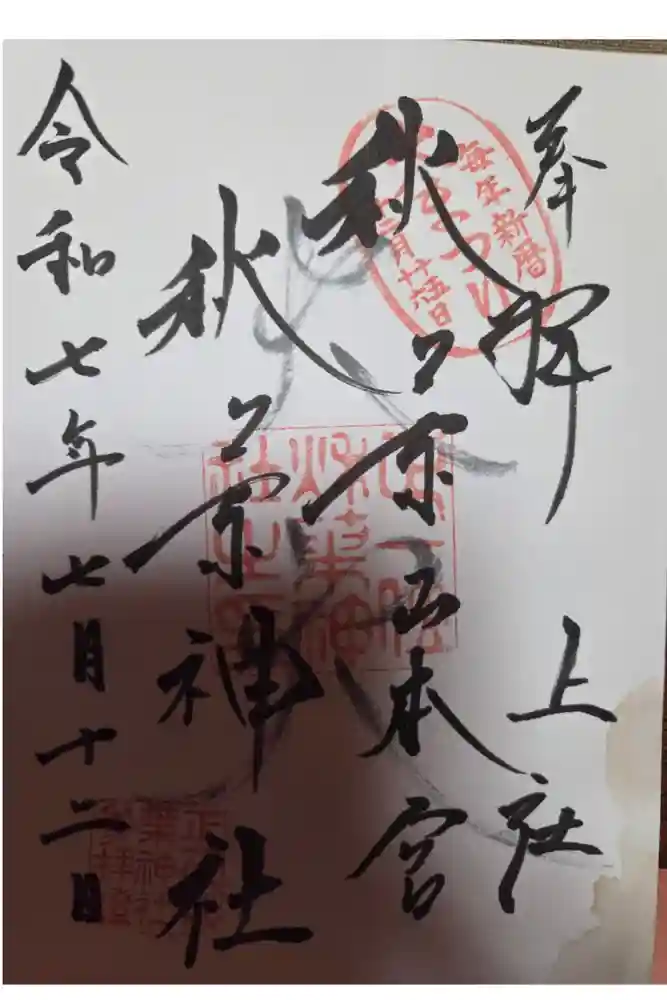 奉拝 上社
秋葉山本宮
秋葉神社
令和七年七月十二日
毎年新暦
十二月廿五日
正一位
秋葉神
社之印